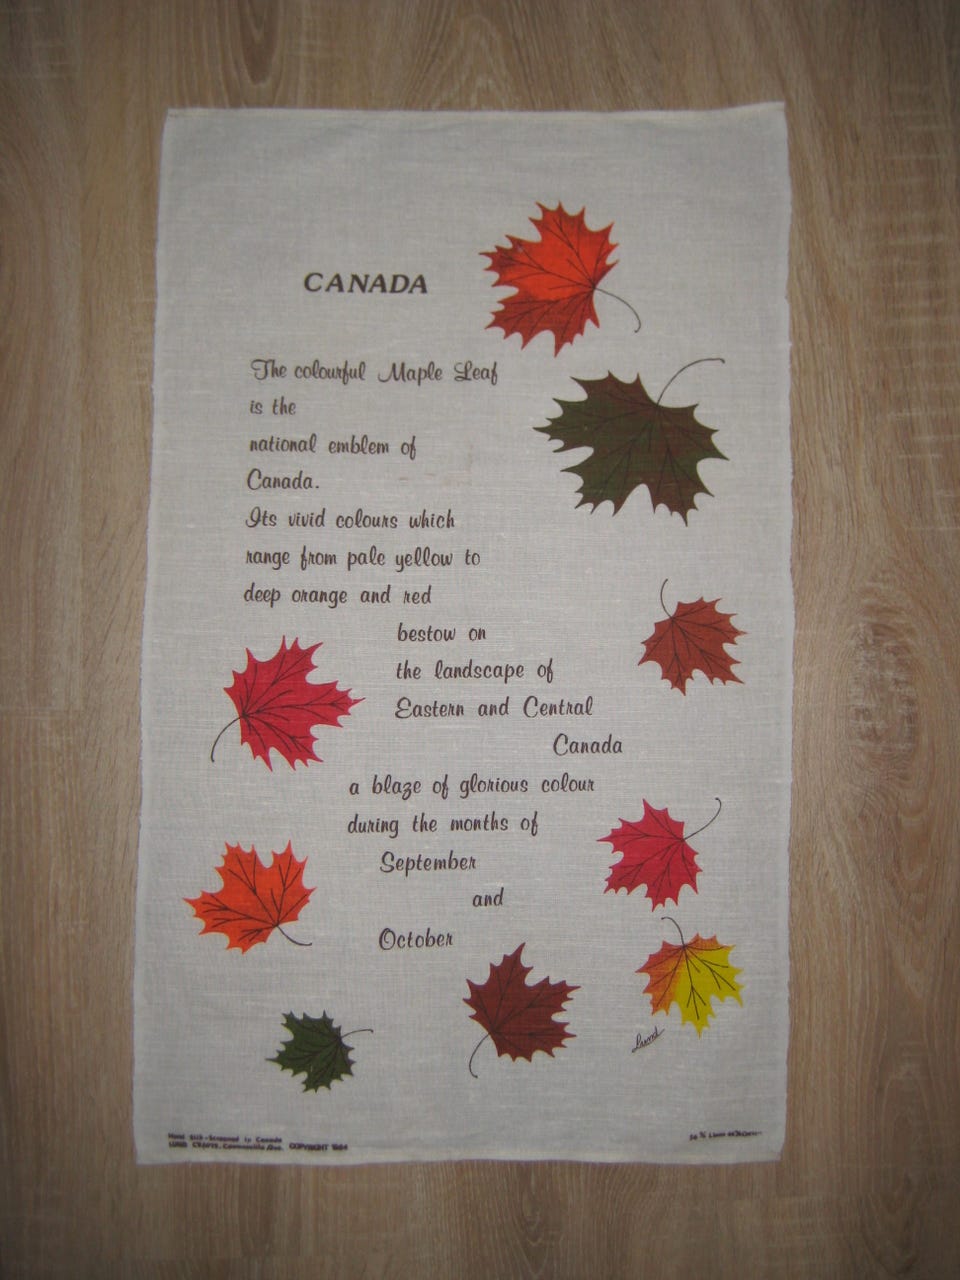 CANADA
The colourful Maple Leaf
is the
national emblem of
Canada.
Its vivid colours which
range from pale yellow to
deep orange and red
bestow on
the landscape of
Eastern and Central
Canada
a blaze of glorious colour
during the months of
September
and
October
Lund
Hand Silk-Screened in Canada
LUND CRAFTS. COPYRIGHT 1984
Linen